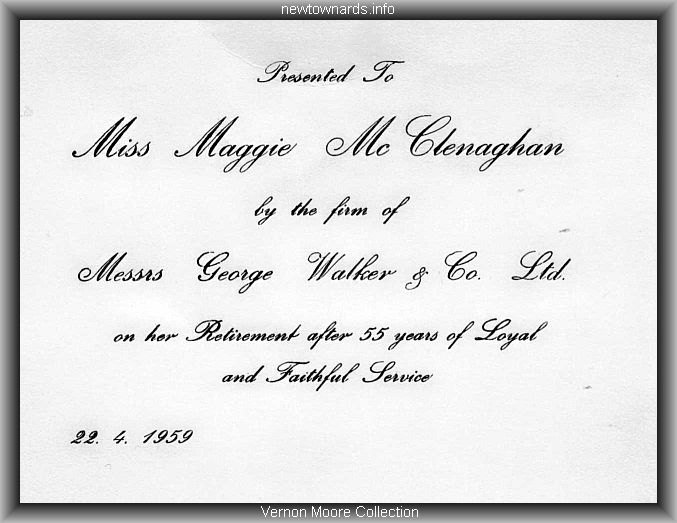 newtownards.info
Presented To
Miss Maggie Mc Clenaghan
by the firm of
Messrs George Walker & Co. Ltd.
on her Retirement after 55 years of Loyal
and Faithful Service
22. 4. 1959
Vernon Moore Collection